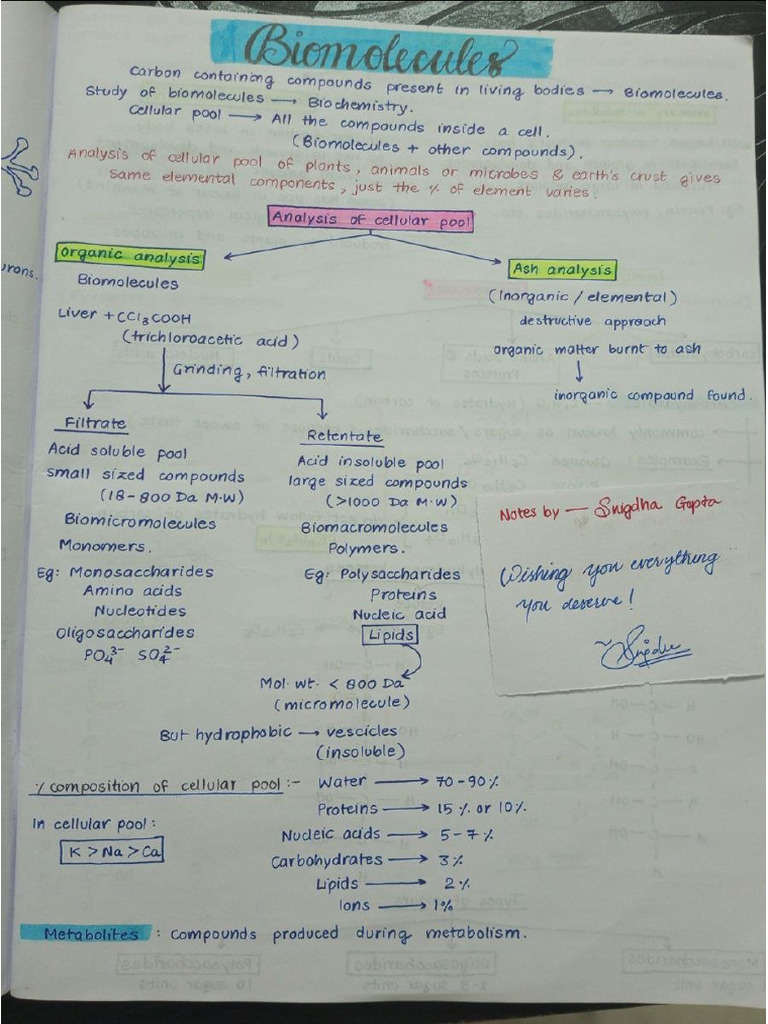 Biomolecules
Carbon containing compounds present in living bodies → Biomolecules.
Study of biomolecules → Biochemistry.
Cellular pool → All the compounds inside a cell.
(Biomolecules + other compounds).
Analysis of cellular pool of plants, animals or microbes & earth's crust gives
same elemental components, just the % of element varies.
Analysis of cellular pool
Organic analysis
Biomolecules
Liver + CCl3COOH
(trichloroacetic acid)
Grinding, filtration
Ash analysis
(Inorganic / elemental)
destructive approach
organic matter burnt to ash
↓
inorganic compound found.
Filtrate
Acid soluble pool
small sized compounds
(18-800 Da M.W)
Biomicromolecules
Monomers.
Eg: Monosaccharides
Amino acids
Nucleotides
Oligosaccharides
PO4³⁻ SO4²⁻
Retentate
Acid insoluble pool
large sized compounds
(>1000 Da M.W)
Biomacromolecules
Polymers.
Eg: Polysaccharides
Proteins
Nucleic acid
Lipids
Mol. wt. < 800 Da
(micromolecule)
But hydrophobic → vescicles
(insoluble)
Notes by — Snigdha Gupta
Wishing you everything
you deserve!
~Snigdha
% composition of cellular pool :-
Water → 70-90%
Proteins → 15% or 10%
Nucleic acids → 5-7%
Carbohydrates → 3%
Lipids → 2%
Ions → 1%
In cellular pool:
K > Na > Ca
Metabolites : compounds produced during metabolism.
urons.